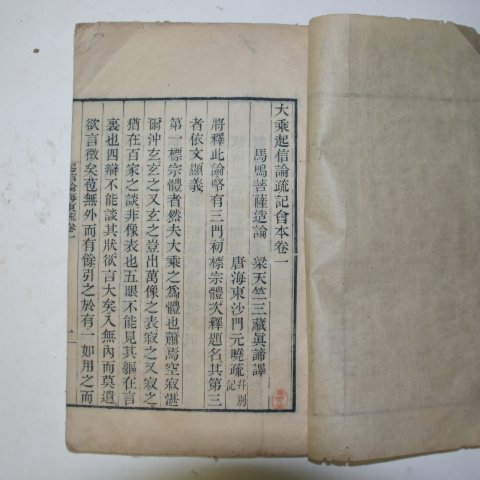 大乘起信論疏記會本卷一
馬鳴菩薩造論　梁天竺三藏眞諦譯
唐海東沙門元曉疏并別記
將釋此論略有三門初標宗體次釋題名其第三
者依文顯義
第一標宗體者然夫大乘之爲體也蕭焉空寂湛
爾沖玄玄之又玄之豈出萬像之表寂之又寂之
猶在百家之談非像表也五眼不能見其軀在言
裏也四辯不能談其狀欲言大矣入無內而莫遺
欲言微矣苞無外而有餘引之於有一如用之而
起信論海東疏卷一
一